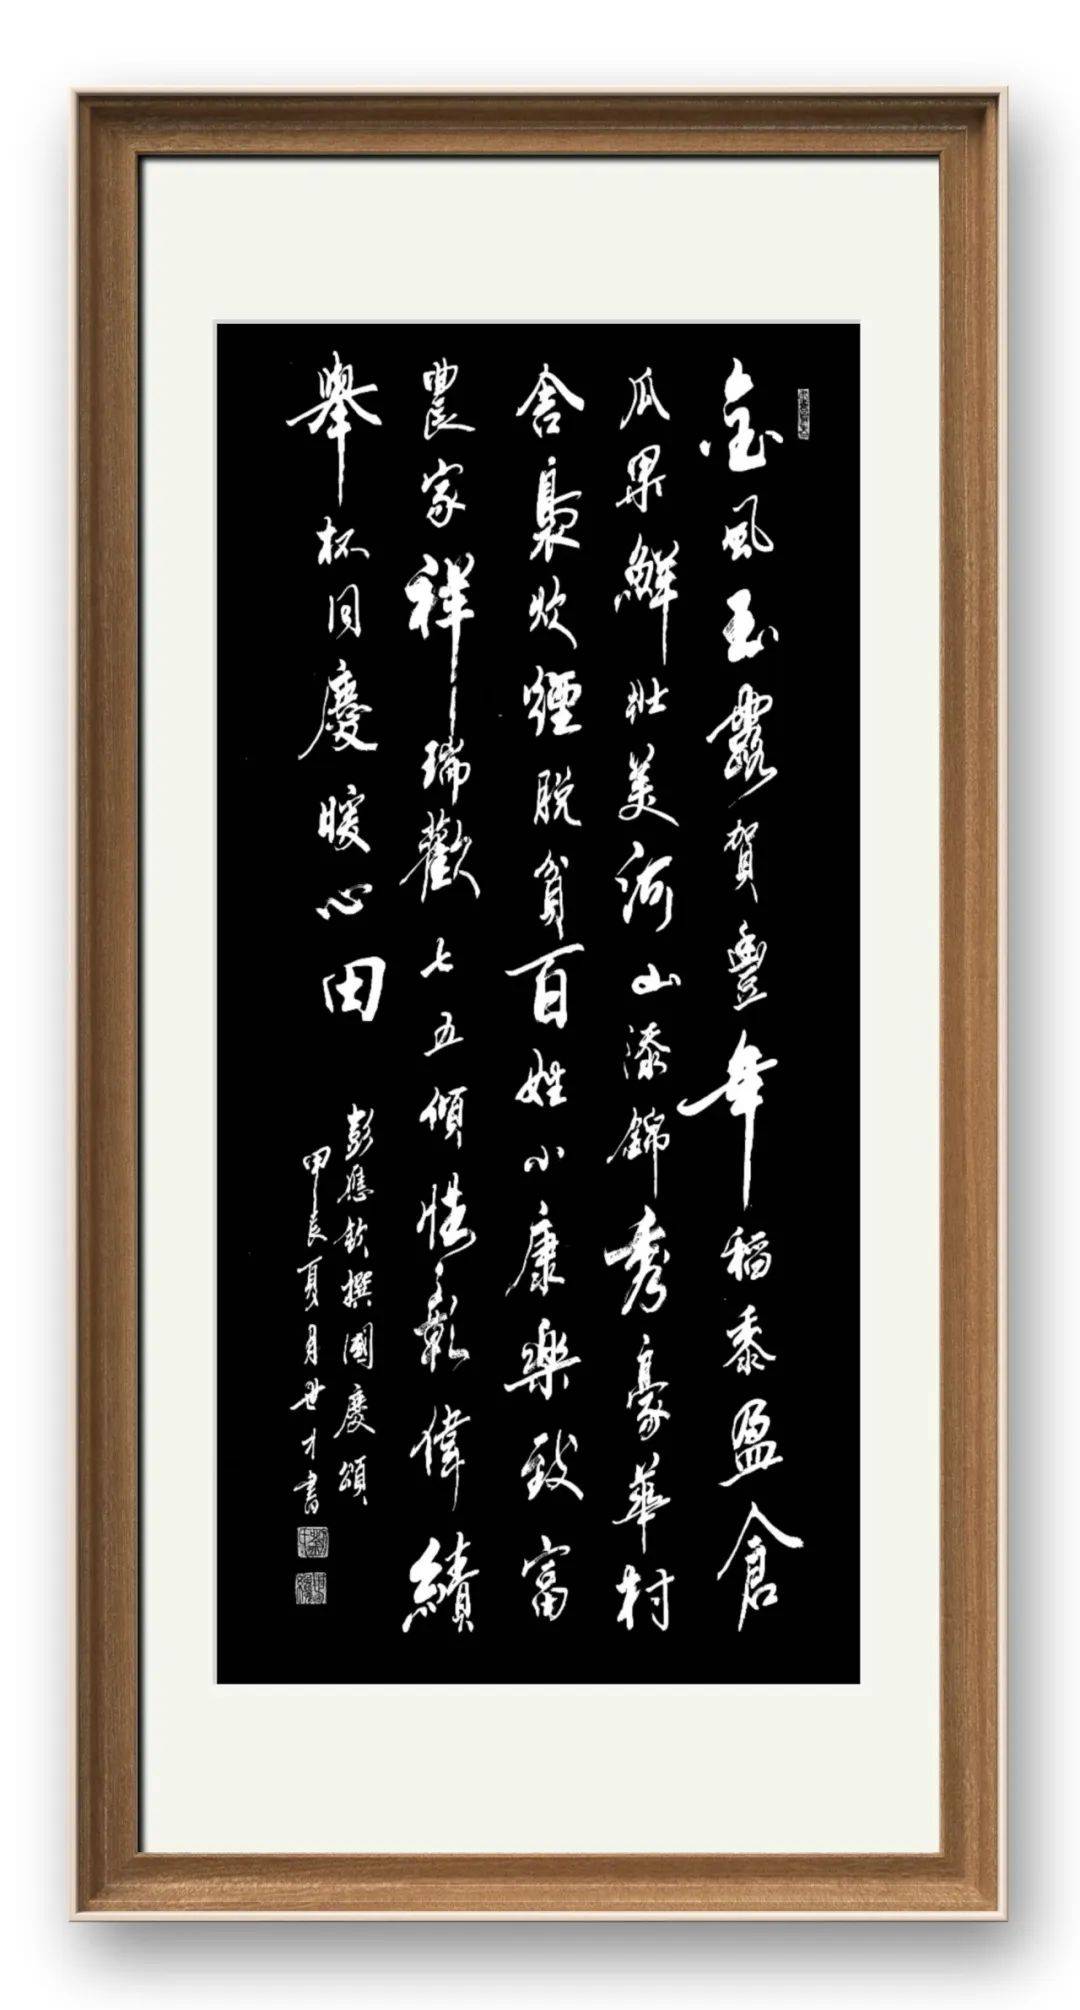 金風玉露賀豐年稻黍盈倉
瓜果鮮壯美河山添錦秀豪華村
舍裊炊煙脱貧百姓小康樂致富
農家祥瑞歡七五傾情彰偉績
舉杯同慶暖心田
彭應欽撰國慶頌
甲辰夏月世才書